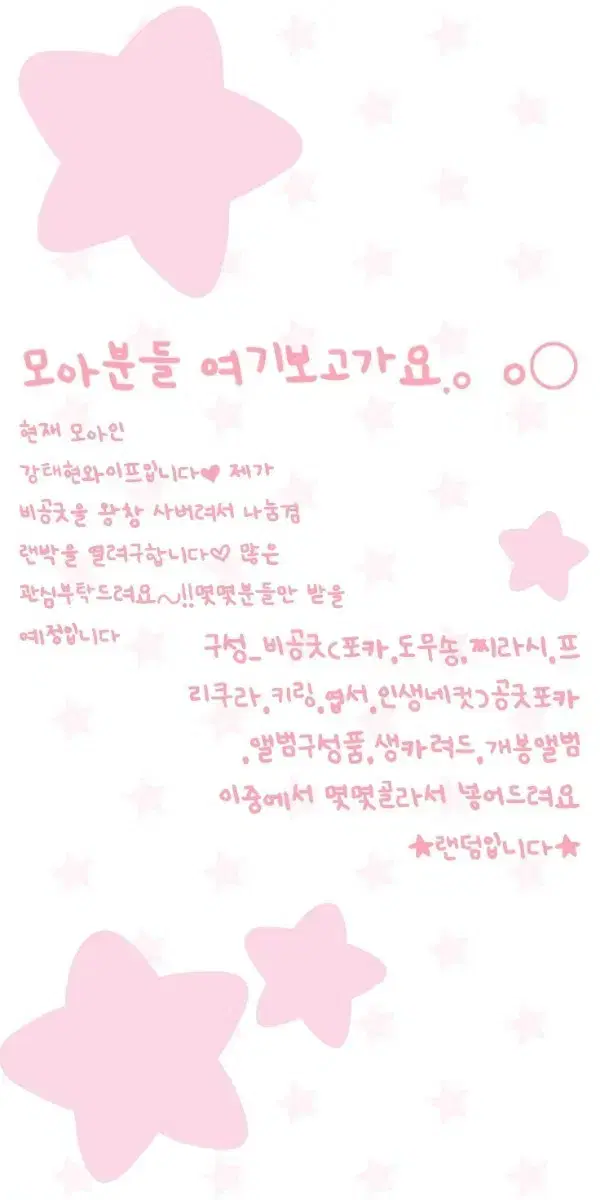 모아분들 여기보고가요.｡ ｡○
현재 모아인
강태현와이프입니다♥ 제가
비공굿을 왕창 사버려서 나눔겸
랜박을 열려구합니다♡ 많은
관심부탁드려요~!!몇몇분들만 받을
예정입니다
구성_비공굿(포카,도무송,찌라시,프
리쿠라,키링,엽서,인생네컷)공굿포카
,앨범구성품,생카럭드,개봉앨범
이중에서 몇몇골라서 넣어드려요
★랜덤입니다★